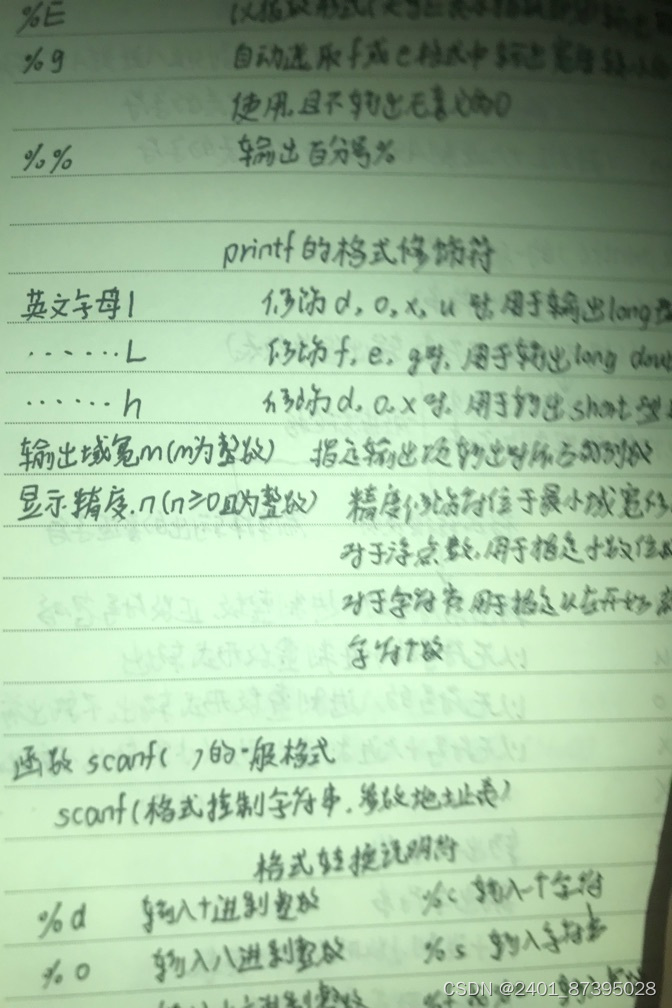 %E 以指数形式
%g 自动选取f或e格式中输出宽度较小的
使用,且不输出无意义的0
%% 输出百分号%
printf的格式修饰符
英文字母l 修饰d, o, x, u时,用于输出long
……L 修饰f, e, g时,用于输出long dou
……h 修饰d, o, x时,用于输出short
输出域宽m(m为整数) 指定输出项输出时所占的列数
显示精度.n(n≥0且为整数) 精度修饰符位于最小域宽修
对于浮点数,用于指定小数位
对于字符串,用于指定从左开始
字符个数
函数scanf( )的一般格式
scanf(格式控制字符串,参数地址表)
格式转换说明符
%d 输入十进制整数 %c 输入一个字符
%o 输入八进制整数 %s 输入字符串
CSDN @2401_87395028